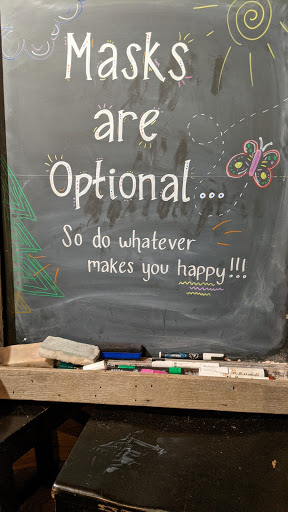 Masks
are
Optional...
So do whatever
makes you happy!!!